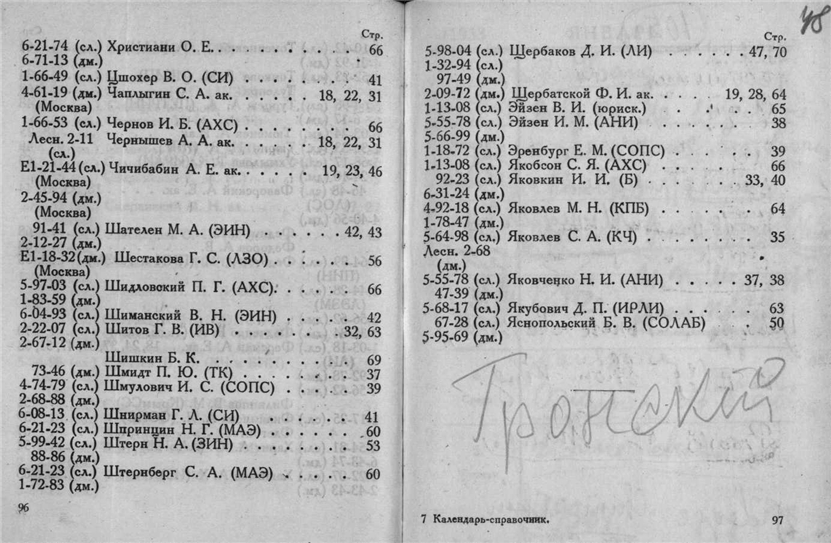 Стр.
6-21-74 (сл.) Христиани О. Е. . . . . . . . . . . . 66
6-71-13 (дм.)
1-66-49 (сл.) Цшохер В. О. (СИ) . . . . . . . . . . 41
4-61-19 (дм.) Чаплыгин С. А. ак. . . . . . . 18, 22, 31
(Москва)
1-66-53 (сл.) Чернов И. Б. (АХС) . . . . . . . . . 66
Лесн. 2-11 Чернышев А. А. ак. . . . . . . 18, 22, 31
(сл.)
Е1-21-44 (сл.) Чичибабин А. Е. ак. . . . . . . 19, 23, 46
(Москва)
2-45-94 (дм.)
(Москва)
91-41 (сл.) Шателен М. А. (ЭИН) . . . . . . 42, 43
2-12-27 (дм.)
Е1-18-32 (дм.) Шестакова Г. С. (ЛЗО) . . . . . . . 56
(Москва)
5-97-03 (сл.) Шидловский П. Г. (АХС). . . . . . . 66
1-83-59 (дм.)
6-04-93 (сл.) Шиманский В. Н. (ЭИН) . . . . . . . 42
2-22-07 (сл.) Шитов Г. В. (ИВ) . . . . . . . . 32, 63
2-67-12 (дм.)
Шишкин Б. К. . . . . . . . . . . . 69
73-46 (дм.) Шмидт П. Ю. (ТК) . . . . . . . . . 37
4-74-79 (сл.) Шмулович И. С. (СОПС) . . . . . . . 39
2-68-88 (дм.)
6-08-13 (сл.) Шнирман Г. Л. (СИ) . . . . . . . . 41
6-21-23 (сл.) Шпринцин Н. Г. (МАЭ) . . . . . . . 60
5-99-42 (сл.) Штерн Н. А. (ЗИН) . . . . . . . . . 53
88-86 (дм.)
6-21-23 (сл.) Штернберг С. А. (МАЭ) . . . . . . 60
1-72-83 (дм.)
96
48
Стр.
5-98-04 (сл.) Щербаков Д. И. (ЛИ) . . . . . . . 47, 70
1-32-94 (сл.)
97-49 (дм.)
2-09-72 (дм.) Щербатской Ф. И. ак. . . . . . 19, 28, 64
1-13-08 (сл.) Эйзен В. И. (юриск.) . . . . . . . . 65
5-55-78 (сл.) Эйзен И. М. (АНИ) . . . . . . . . . 38
5-66-99 (дм.)
1-18-72 (сл.) Эренбург Е. М. (СОПС) . . . . . . . 39
1-13-08 (сл.) Якобсон С. Я. (АХС) . . . . . . . . 66
92-23 (сл.) Яковкин И. И. (Б) . . . . . . . . 33, 40
6-31-24 (дм.)
4-92-18 (сл.) Яковлев М. Н. (КПБ) . . . . . . . . 64
1-78-47 (дм.)
5-64-98 (сл.) Яковлев С. А. (КЧ) . . . . . . . . . 35
Лесн. 2-68
(дм.)
5-55-78 (сл.) Яковченко Н. И. (АНИ) . . . . . . 37, 38
47-39 (дм.)
5-68-17 (сл.) Якубович Д. П. (ИРЛИ) . . . . . . . 63
67-28 (сл.) Яснопольский Б. В. (СОЛАБ) . . . . 50
5-95-69 (дм.)
Тронский
7 Календарь-справочник.
97